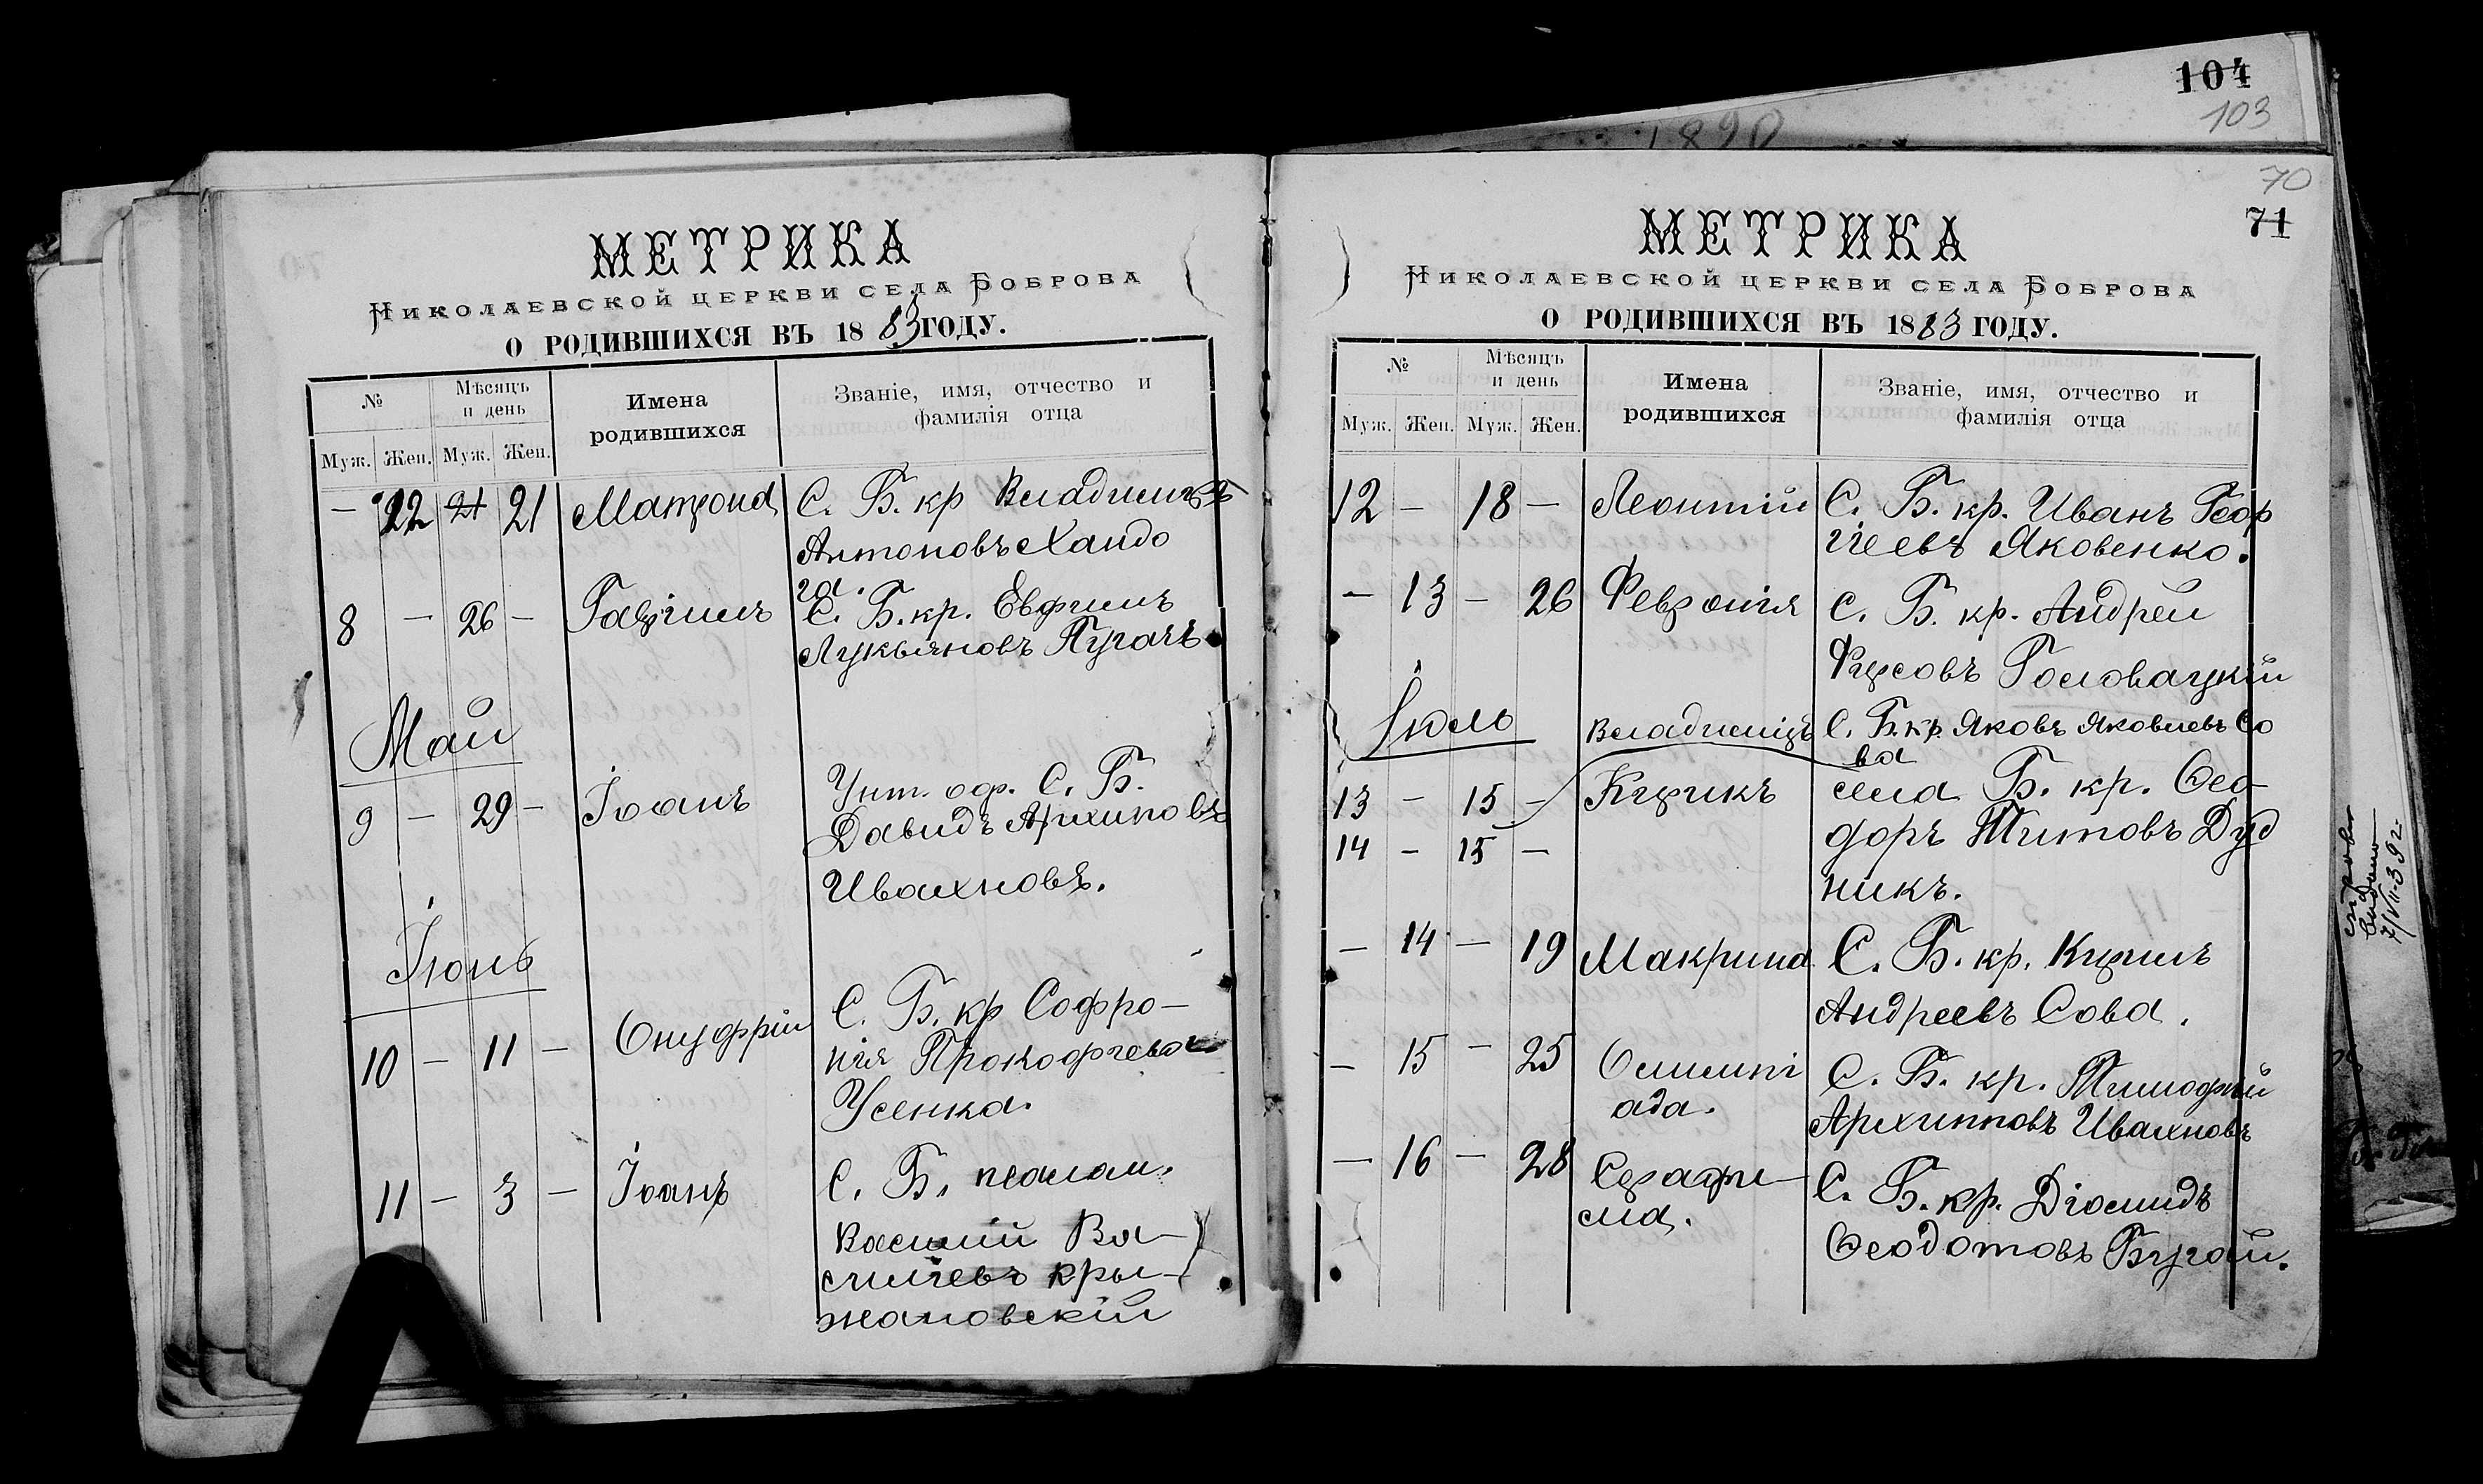 104
103
1890
70
71
МЕТРИКА
Николаевской церкви села Боброва
О РОДИВШИХСЯ ВЪ 1883 ГОДУ.
№ Мѣсяцъ и день Имена родившихся Званіе, имя, отчество и фамилія отца
Муж. Жен. Муж. Жен.
— 12 21 21 Матрона С. Б. кр Владиміръ
Антоновъ Хандо
га.
8 — 26 — Гавріилъ С. Б. кр. Евфимъ
Лукьяновъ Пугачъ
Май
9 — 29 — Іоанъ Унт. оф. С. Б.
Давидъ Архиповъ
Ивахновъ.
Іюнь
10 — 11 — Онуфрій С. Б. кр Софро—
нія Прокофіева
Усенка.
11 — 3 — Іоанъ С. Б. псалом.
Василій Ва—
силіевъ Кры—
жановскій
МЕТРИКА
Николаевской церкви села Боброва
О РОДИВШИХСЯ ВЪ 1883 ГОДУ.
№ Мѣсяцъ и день Имена родившихся Званіе, имя, отчество и фамилія отца
Муж. Жен. Муж. Жен.
12 — 18 — Леонтій С. Б. кр. Иванъ Геор
гіевъ Яковенко.
— 13 — 26 Февронія С. Б. кр. Андрей
Фирсовъ Головацкій
Іюль Владиміръ С. Б. кр. Яковъ Яковлевъ Со
ва
13 — 15 — Кирикъ села Б. кр. Ѳео—
14 — 15 — доръ Титовъ Дуд
никъ.
— 14 — 19 Макрина С. Б. кр. Кирилъ
Андреевъ Сова.
— 15 — 25 Олимпі С. Б. кр. Тимофій
ада. Архипповъ Ивахновъ
— 16 — 28 Серафи— С. Б. кр. Діомидъ
ма. Ѳеодотовъ Бугай.